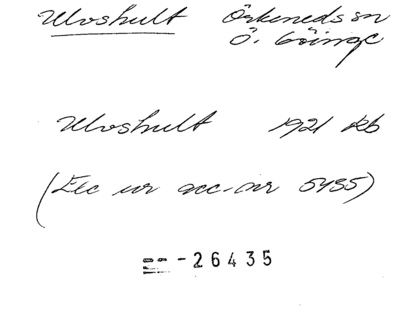 Ulvshult Örkeneds sn
Ö. Göinge
Ulvshult 1921 kb
(Exc ur acc. nr 5435)
-26435